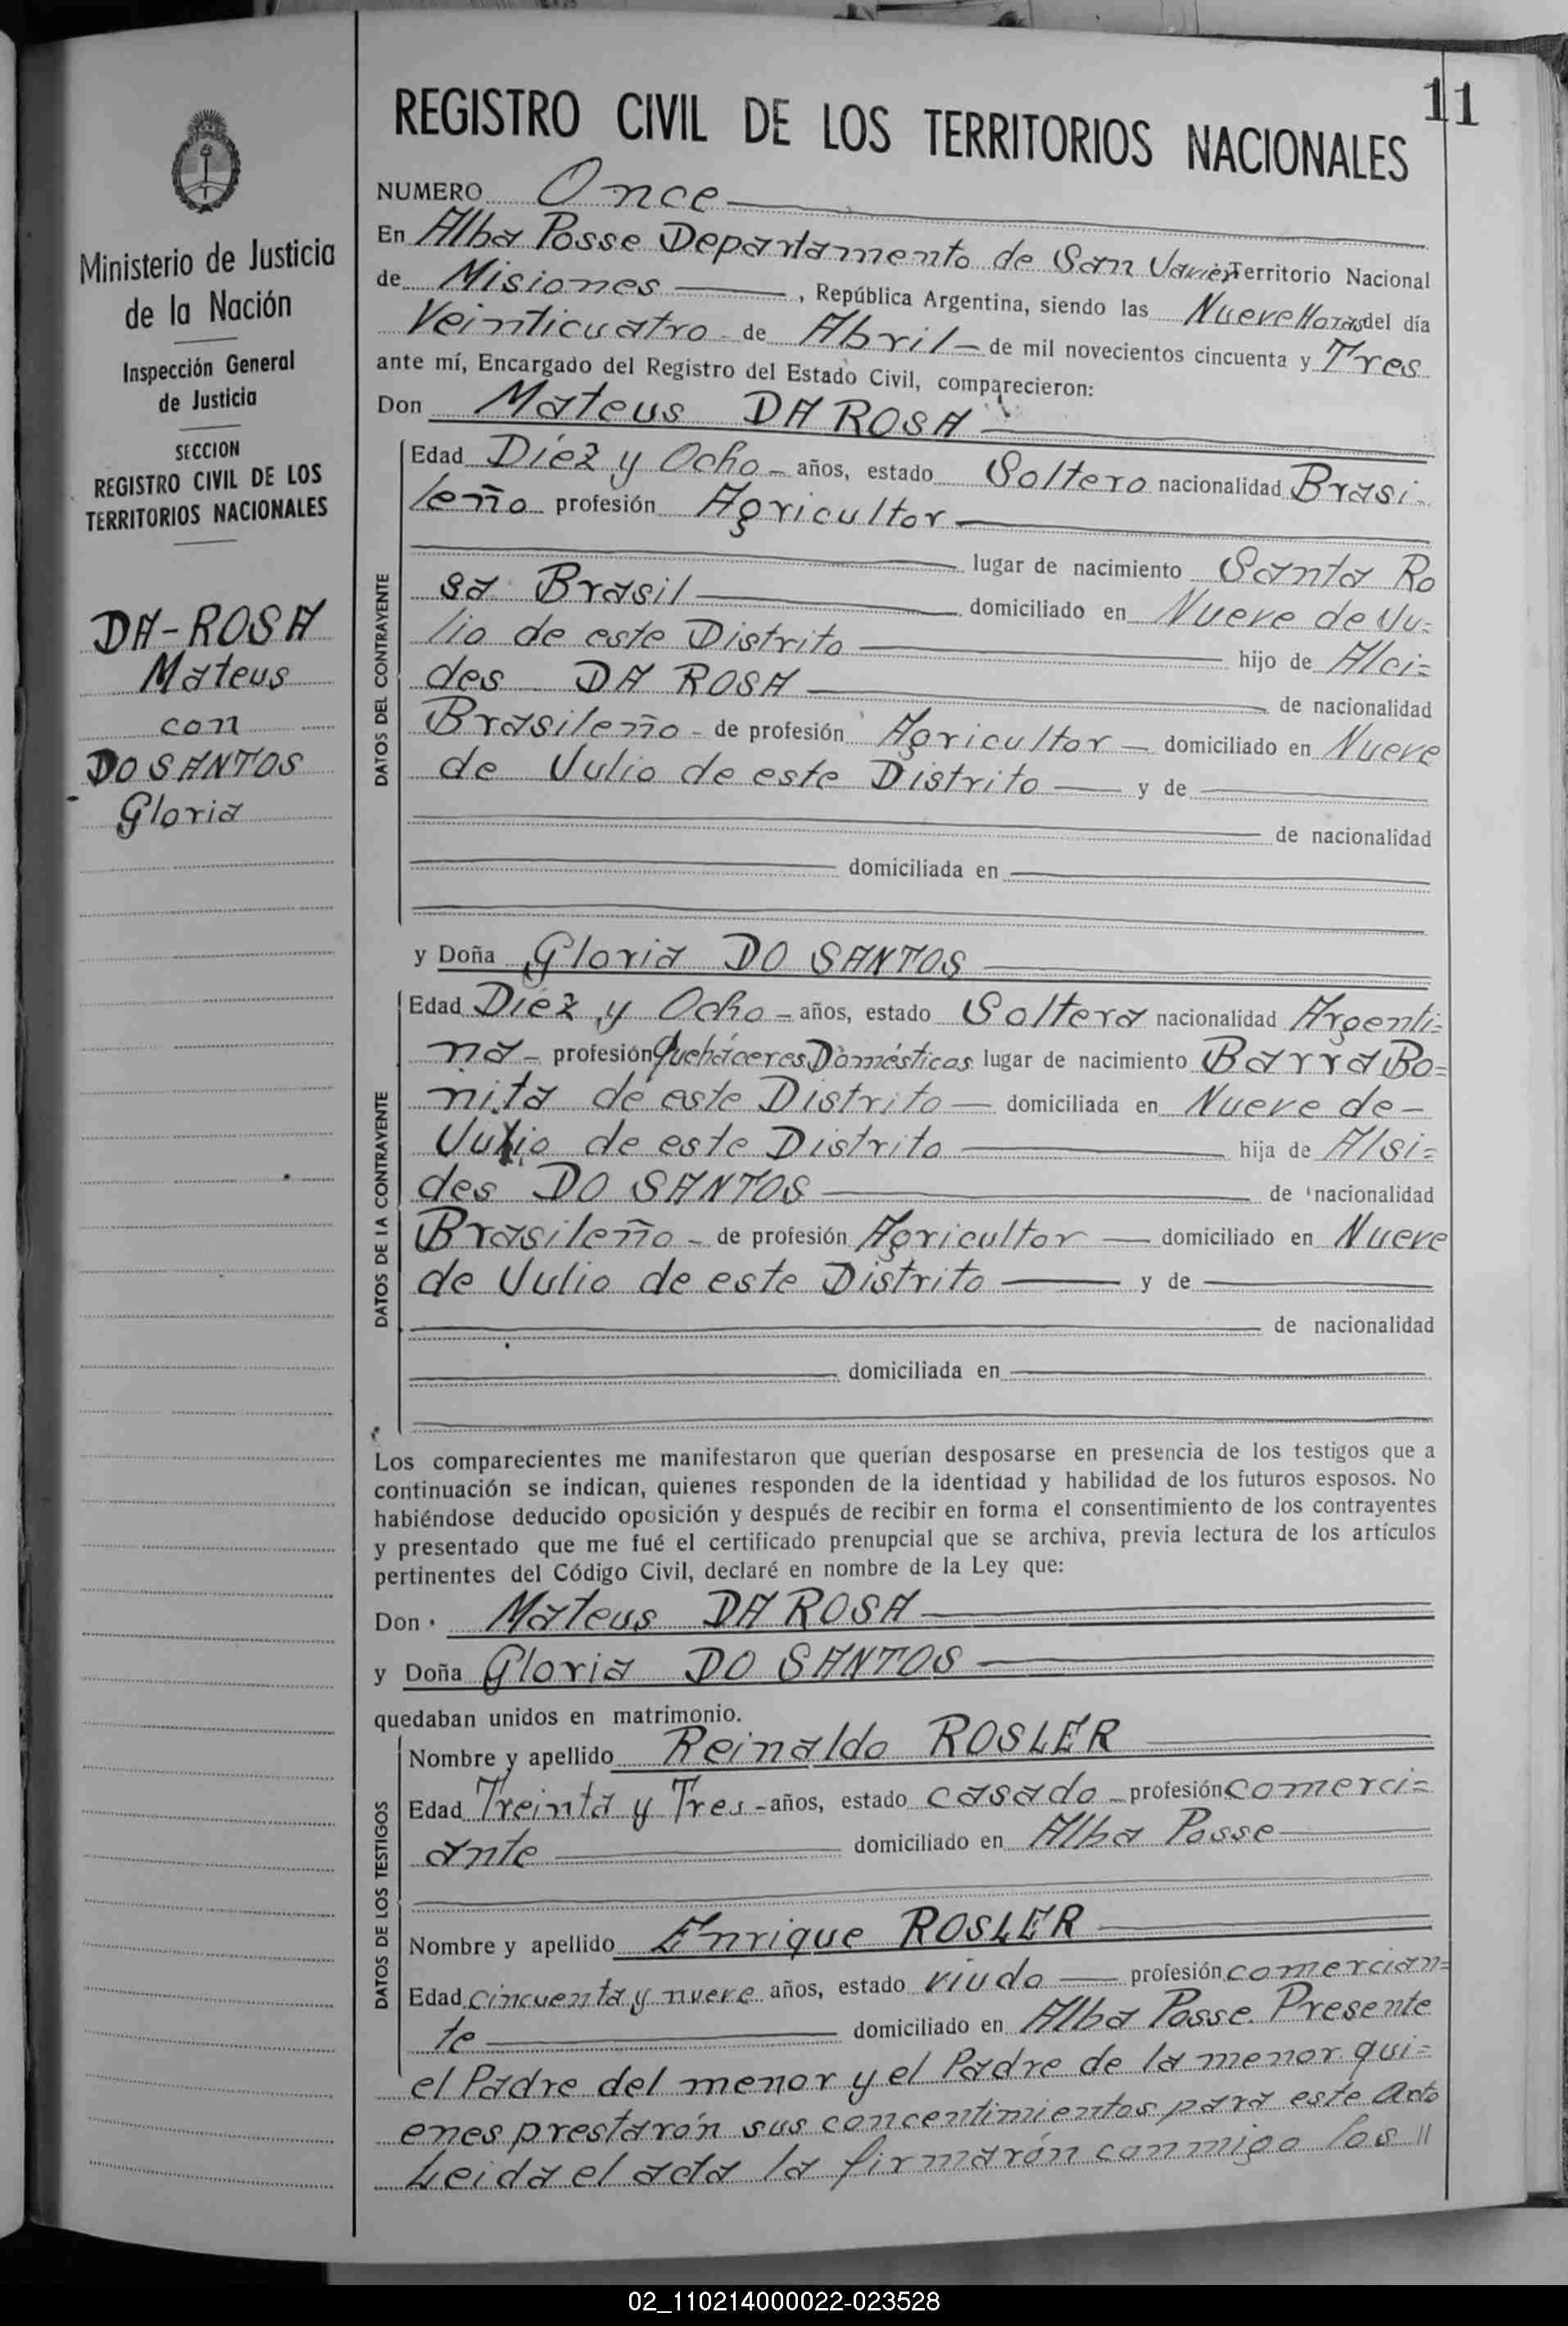 11
REGISTRO CIVIL DE LOS TERRITORIOS NACIONALES
Ministerio de Justicia
de la Nación
Inspección General
de Justicia
SECCION
REGISTRO CIVIL DE LOS
TERRITORIOS NACIONALES
DA-ROSA
Mateus
con
DO SANTOS
Gloria
NUMERO Once
En Alba Posse Departamento de San Javier Territorio Nacional
de Misiones, República Argentina, siendo las Nueve Horas del día
Veinticuatro de Abril de mil novecientos cincuenta y Tres
ante mí, Encargado del Registro del Estado Civil, comparecieron:
Don Mateus DA ROSA
DATOS DEL CONTRAYENTE
Edad Diéz y Ocho años, estado Soltero nacionalidad Brasi-
leño profesión Agricultor
lugar de nacimiento Santa Ro
sa Brasil domiciliado en Nueve de Ju=
lio de este Distrito hijo de Alci=
des DA ROSA de nacionalidad
Brasileño - de profesión Agricultor domiciliado en Nueve
de Julio de este Distrito y de
de nacionalidad
domiciliada en
y Doña Gloria DO SANTOS
DATOS DE LA CONTRAYENTE
Edad Diéz y Ocho años, estado Soltera nacionalidad Argenti=
na - profesión Queháceres Domésticos lugar de nacimiento Barra Bo=
nita de este Distrito domiciliada en Nueve de -
Julio de este Distrito hija de Alsi=
des DO SANTOS de nacionalidad
Brasileño - de profesión Agricultor domiciliado en Nueve
de Julio de este Distrito y de
de nacionalidad
domiciliada en
Los comparecientes me manifestaron que querían desposarse en presencia de los testigos que a
continuación se indican, quienes responden de la identidad y habilidad de los futuros esposos. No
habiéndose deducido oposición y después de recibir en forma el consentimiento de los contrayentes
y presentado que me fué el certificado prenupcial que se archiva, previa lectura de los artículos
pertinentes del Código Civil, declaré en nombre de la Ley que:
Don Mateus DA ROSA
y Doña Gloria DO SANTOS
quedaban unidos en matrimonio.
DATOS DE LOS TESTIGOS
Nombre y apellido Reinaldo ROSLER
Edad Treinta y Tres - años, estado casado profesión comerci=
ante domiciliado en Alba Posse
Nombre y apellido Enrique ROSLER
Edad cincuenta y nueve años, estado viudo profesión comercian=
te domiciliado en Alba Posse. Presente
el Padre del menor y el Padre de la menor qui=
enes prestarón sus concentimientos para este acto
Leida el acta la firmarón conmigo los "
02_110214000022-023528